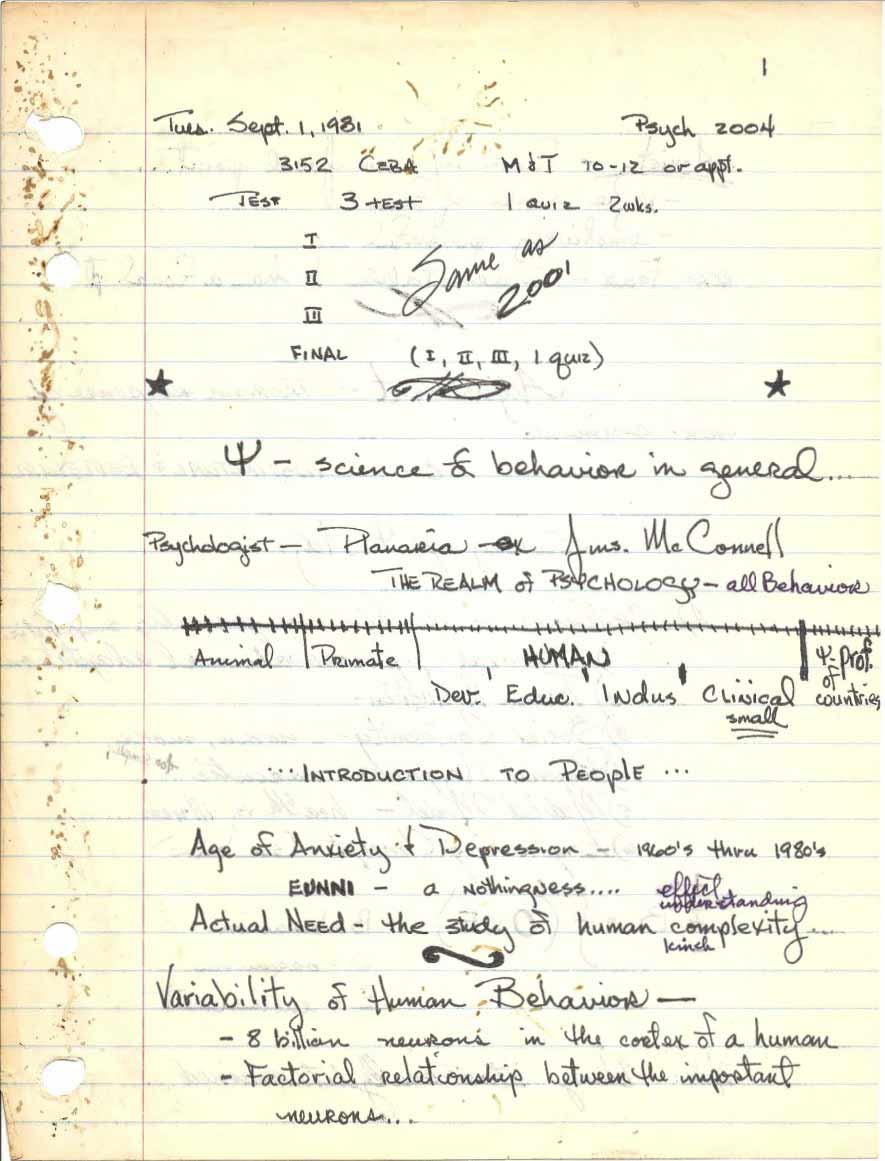 1
Tues. Sept. 1, 1981 Psych 2004
3152 CEBA M & T 10-12 or appt.
TEST 3 test 1 quiz 2wks.
I
II
III
Same as
2001
FINAL (I, II, III, 1 quiz)
Ψ - science of behavior in general...
Psychologist - Planaria - Jms. McConnell
THE REALM of PSYCHOLOGY - all Behavior
Animal Primate HUMAN Ψ-Prof. of countries
Dev. Educ. Indus Clinical
small
... INTRODUCTION TO PEOPLE ...
Age of Anxiety & Depression - 1960's thru 1980's
EUNNI - a nothingness....
effect
understanding
Actual NEED - the study of human complexity...
kinch
Variability of Human Behavior -
- 8 billion neurons in the cortex of a human
- Factorial relationship between the important
neurons...